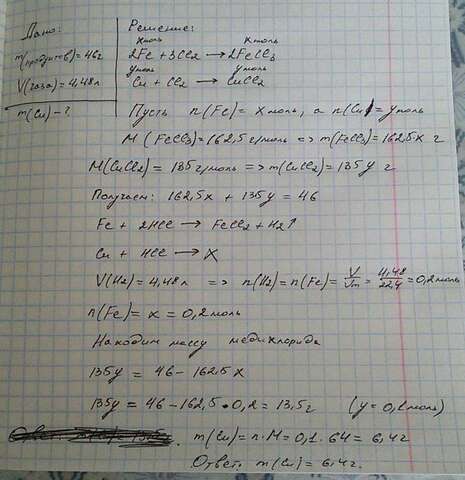 Дано:
m(продуктов)=46г
V(газа)=4,48л
m(Cu)-?
Решение:
xмоль xмоль
2Fe + 3Cl2 → 2FeCl3
yмоль yмоль
Cu + Cl2 → CuCl2
Пусть n(Fe)= x моль, а n(Cu)= y моль
M(FeCl3)=162,5 г/моль => m(FeCl3)=162,5·x г
M(CuCl2)= 135 г/моль => m(CuCl2)= 135y г
Получаем: 162,5x + 135y = 46
Fe + 2HCl → FeCl2 + H2↑
Cu + HCl → X
V(H2)=4,48л => n(H2)=n(Fe)= V/Vm = 4,48/22,4 = 0,2моль
n(Fe)= x = 0,2моль
Находим массу меди хлорида
135y = 46 - 162,5 x
135y = 46 - 162,5 · 0,2 = 13,5г (y = 0,1моль)
m(Cu)= n·M = 0,1·64 = 6,4г
Ответ: m(Cu)= 6,4г.